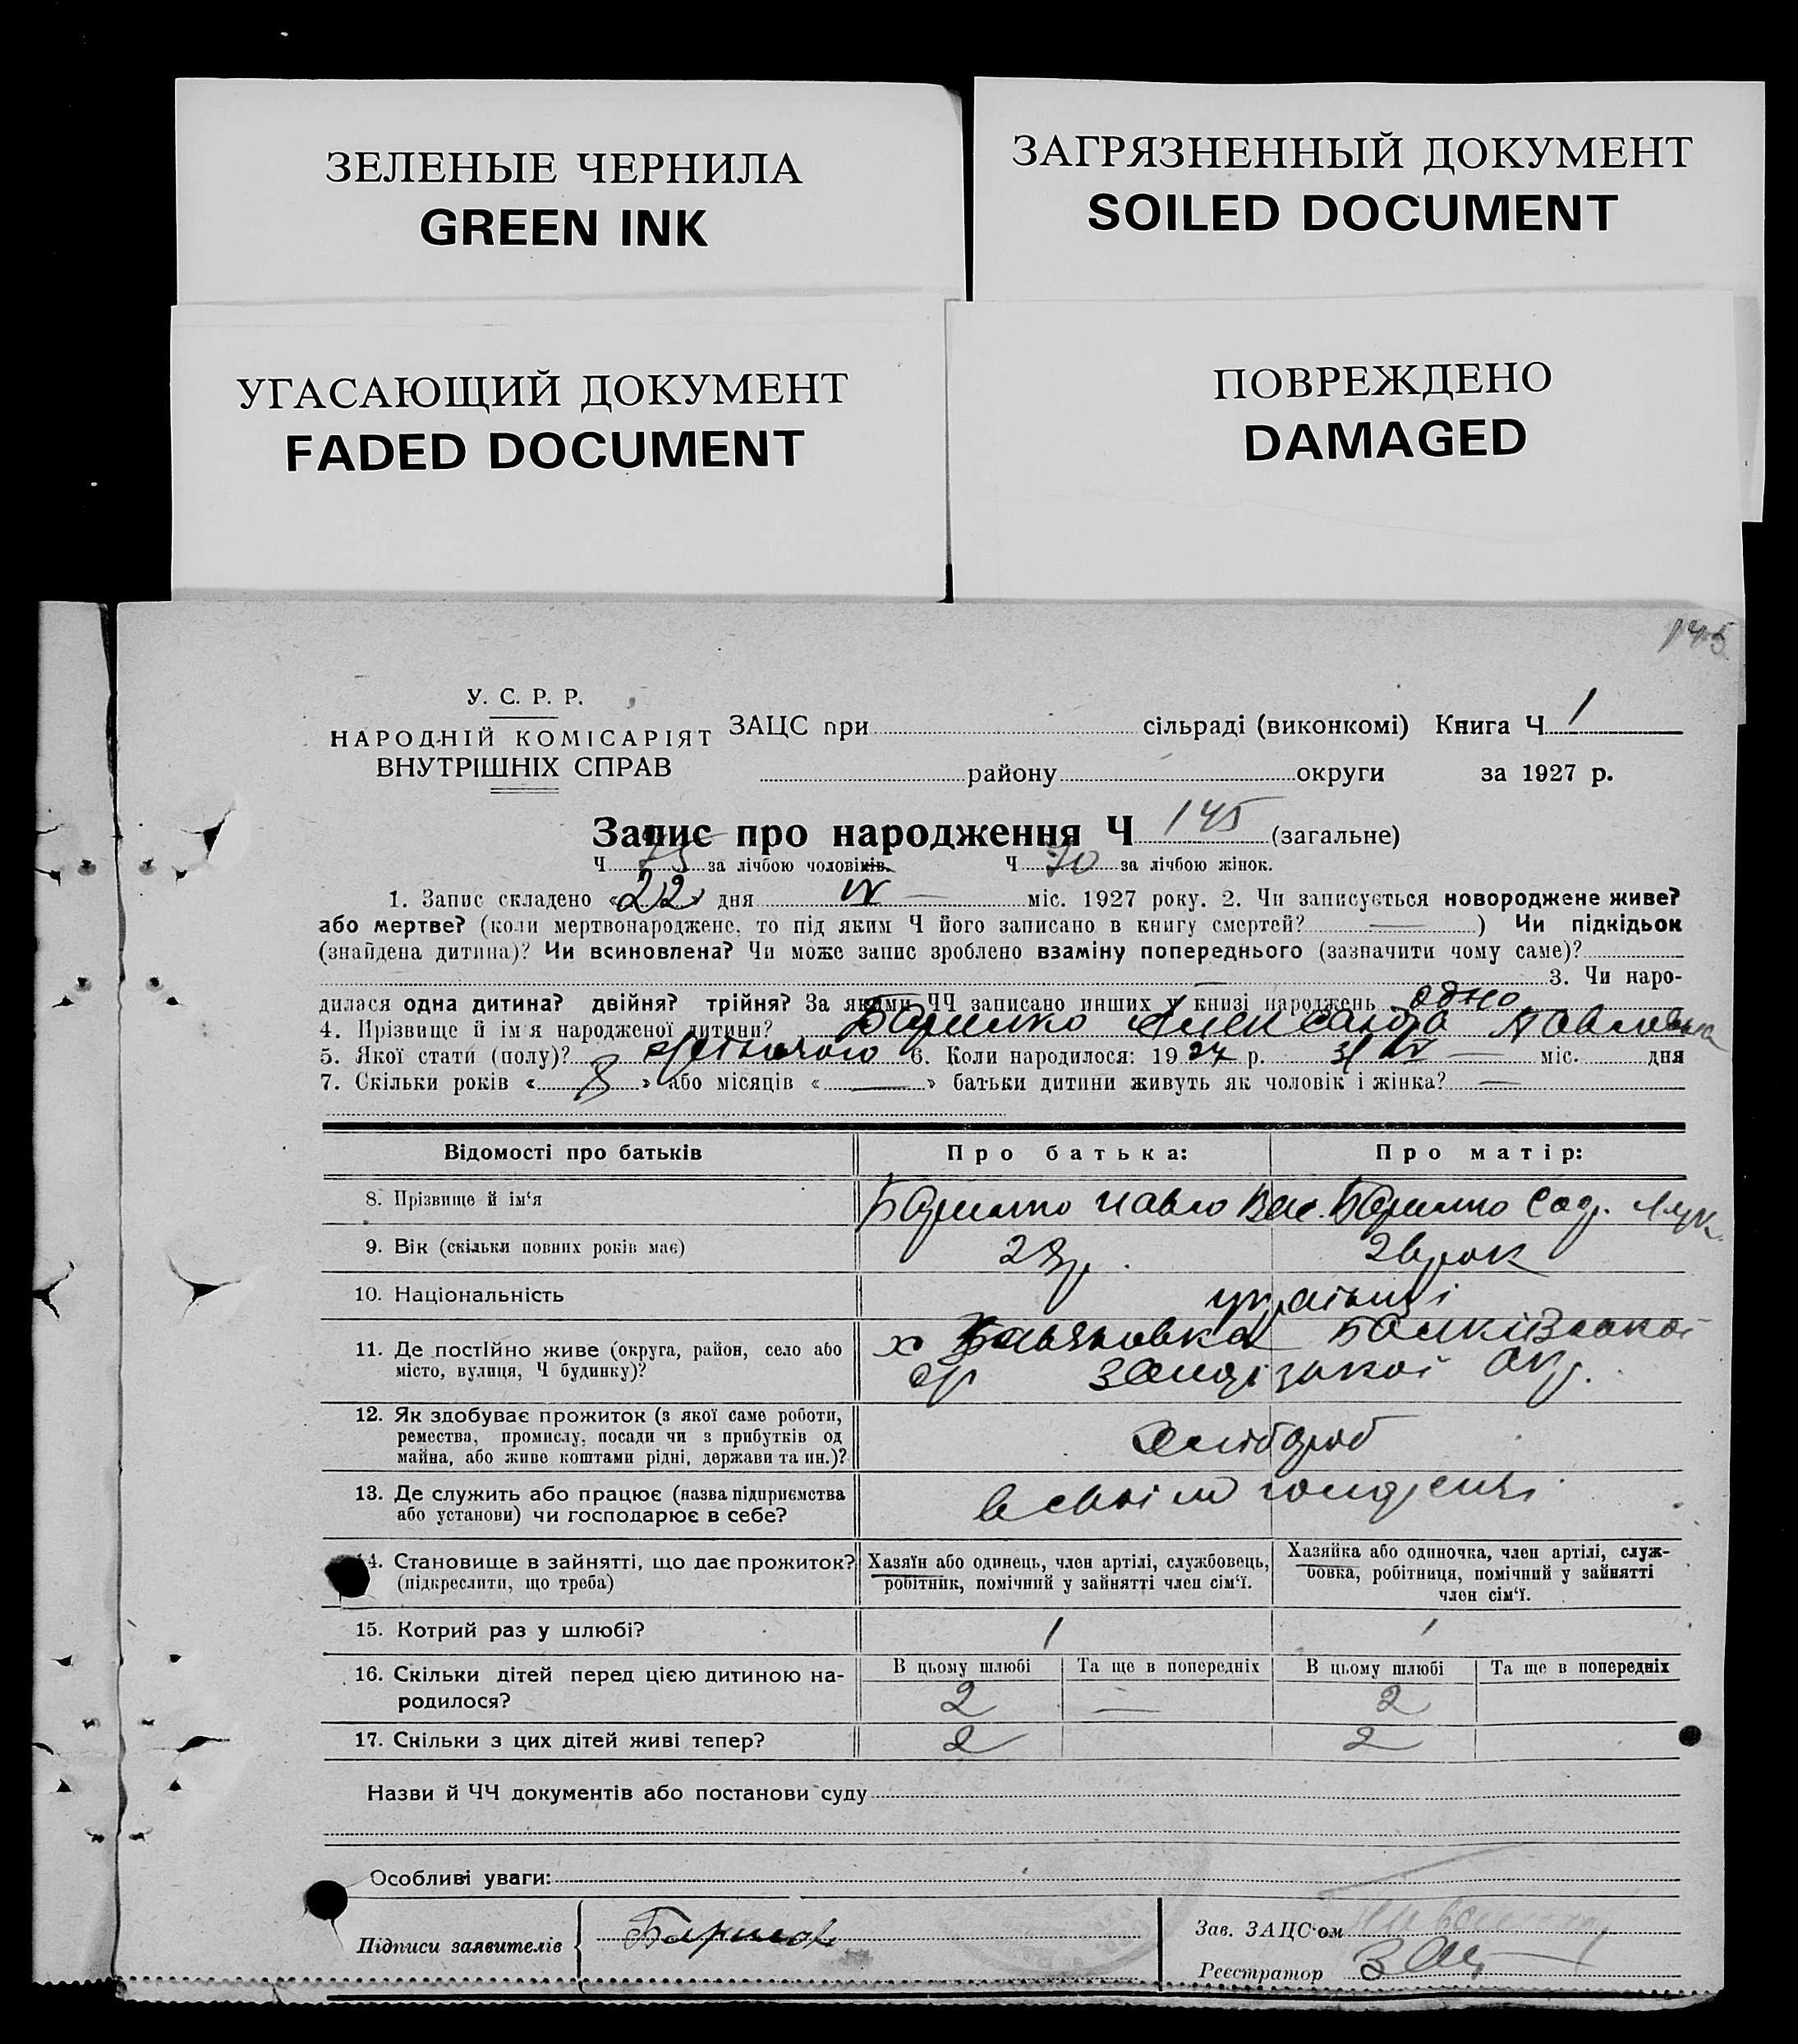 ЗЕЛЕНЫЕ ЧЕРНИЛА
GREEN INK
ЗАГРЯЗНЕННЫЙ ДОКУМЕНТ
SOILED DOCUMENT
УГАСАЮЩИЙ ДОКУМЕНТ
FADED DOCUMENT
ПОВРЕЖДЕНО
DAMAGED
145
У. С. Р. Р.
НАРОДНІЙ КОМІСАРІЯТ
ВНУТРІШНІХ СПРАВ
ЗАЦС при сільраді (виконкомі) Книга Ч 1
району округи за 1927 р.
Запис про народження Ч 145 (загальне)
Ч 75 за лічбою чоловіків. Ч 70 за лічбою жінок.
1. Запис складено «22» дня IV — міс. 1927 року. 2. Чи записується новороджене живе?
або мертве? (коли мертвонароджене, то під яким Ч його записано в книгу смертей? — ) Чи підкідьок
(знайдена дитина)? Чи всиновлена? Чи може запис зроблено взаміну попереднього (зазначити чому саме)?
3. Чи наро-
дилася одна дитина? двійня? трійня? За якими ЧЧ записано инших у книзі народжень одно
4. Прізвище й ім'я народженої дитини? Александра Павловна
5. Якої статі (полу)? жіночого 6. Коли народилося: 1927 р. — міс. дня
7. Скільки років « 8 » або місяців « — » батьки дитини живуть як чоловік і жінка? —
Відомості про батьків Про батька: Про матір:
8. Прізвище й ім'я Павло Вас.
9. Вік (скільки повних років має) 28 р. 26 рок
10. Національність українці
11. Де постійно живе (округа, район, село або
місто, вулиця, Ч будинку)? х
с/р окр.
12. Як здобуває прожиток (з якої саме роботи,
ремества, промислу, посади чи з прибутків од
майна, або живе коштами рідні, держави та ин.)? хлібороб
13. Де служить або працює (назва підприємства
або установи) чи господарює в себе? в своїм
14. Становище в зайнятті, що дає прожиток?
(підкреслити, що треба)
Хазяїн або одинець, член артілі, службовець,
робітник, помічний у зайнятті член сім'ї.
Хазяйка або одиночка, член артілі, служ-
бовка, робітниця, помічний у зайнятті
член сім'ї.
15. Котрий раз у шлюбі? 1 1
16. Скільки дітей перед цією дитиною на-
родилося?
В цьому шлюбі Та ще в попередніх В цьому шлюбі Та ще в попередніх
2 — 2
17. Скільки з цих дітей живі тепер? 2 2
Назви й ЧЧ документів або постанови суду
Особливі уваги:
Підписи заявителів
Зав. ЗАЦС'ом
Реєстратор